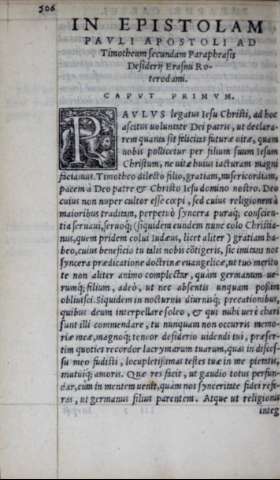 506
IN EPISTOLAM
PAVLI APOSTOLI AD
Timotheum secundam Paraphrasis
Desiderij Erasmi Ro-
terodami.
CAPVT PRIMVM.
PAVLVS legatus Iesu Christi, ad hoc
ascitus uoluntate Dei patris, ut declara-
rem quanta sit felicitas futuræ uitæ, quam
nobis pollicetur per filium suum Iesum
Christum, ne uitæ huius iacturam magni
faciamus. Timotheo dilecto filio, gratiam, misericordiam,
pacem à Deo patre & Christo Iesu domino nostro. Deo
cuius non nuper cultor esse cœpi, sed cuius religionem à
maioribus traditam, perpetuò syncera puraq́; conscien-
tia seruaui, seruoq́; (siquidem eundem nunc colo Christia-
nus, quem pridem colui Iudæus, licet aliter) gratiam ha-
beo, cuius beneficio tu talis nobis cõtigeris, sic imitans nos
syncera prædicatione doctrinæ euangelicæ, ut tuo merito
te non aliter animo complectar, quàm germanum ue-
rumq́; filium, adeò, ut nec absentis unquam possim
obliuisci. Siquidem in nocturnis diurnisq́; precationibus,
quibus deum interpellare soleo, & qui nubi uerè chari
sunt illi commendare, tu nunquam non occurris memo-
riæ meæ, magnoq́; teneor desiderio uidendi tui, præser-
tim quoties recordor lacrymarum tuarum, quas in discess-
su meo fudisti, locupletissimas testes tuæ in me pietatis,
mutuiq́; amoris. Quæ res facit, ut gaudio totus perfun-
dar, cùm in mentem uenit, quàm nos synceritate fidei refe-
ras, ut germanus filius parentem. Atque ut religionis
integ